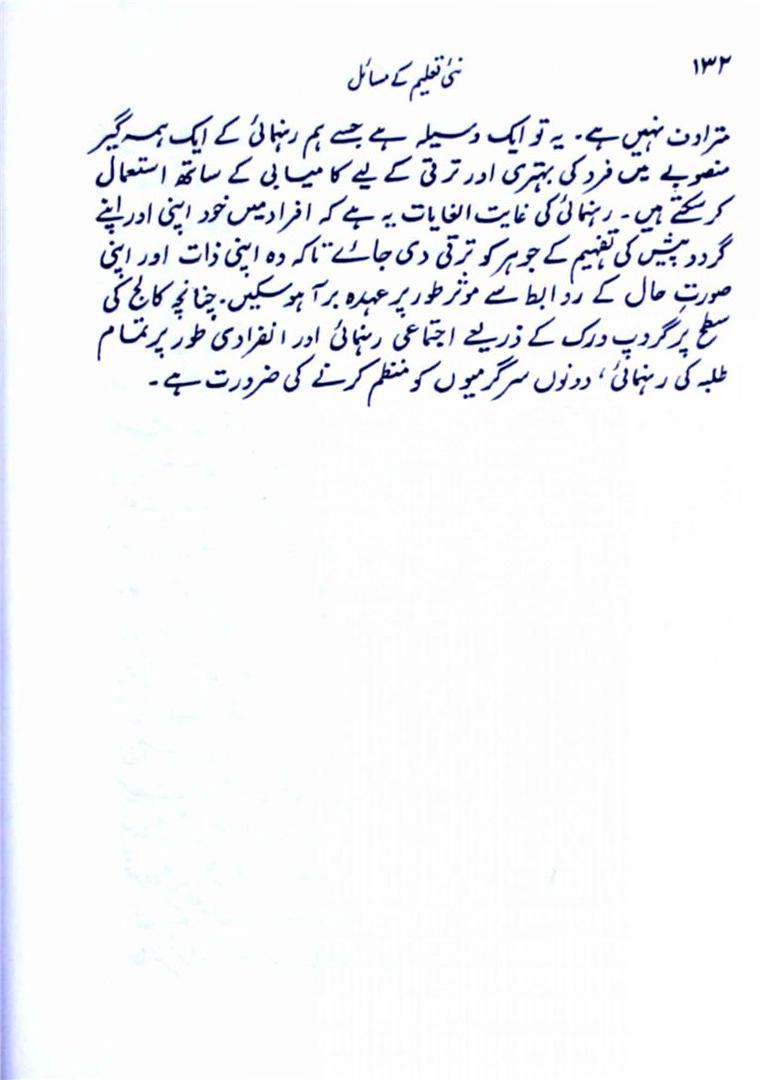 ۱۳۲
نئی تعلیم کے مسائل
مترادف نہیں ہے۔ یہ تو ایک وسیلہ ہے جسے ہم رہنمائی کے ایک ہمہ گیر
منصوبے میں فرد کی بہتری اور ترقی کے لیے کامیابی کے ساتھ استعمال
کرسکتے ہیں۔ رہنمائی کی غایت الغایات یہ ہے کہ افراد میں خود اپنی اور اپنے
گردو پیش کی تفہیم کے جوہر کو ترقی دی جائے تاکہ وہ اپنی ذات اور اپنی
صورتِ حال کے روابط سے موثر طور پر عہدہ برآ ہوسکیں۔ چنانچہ کالج کی
سطح پر گروپ ورک کے ذریعے اجتماعی رہنمائی اور انفرادی طور پر تمام
طلبہ کی رہنمائی، دونوں سرگرمیوں کو منظم کرنے کی ضرورت ہے۔